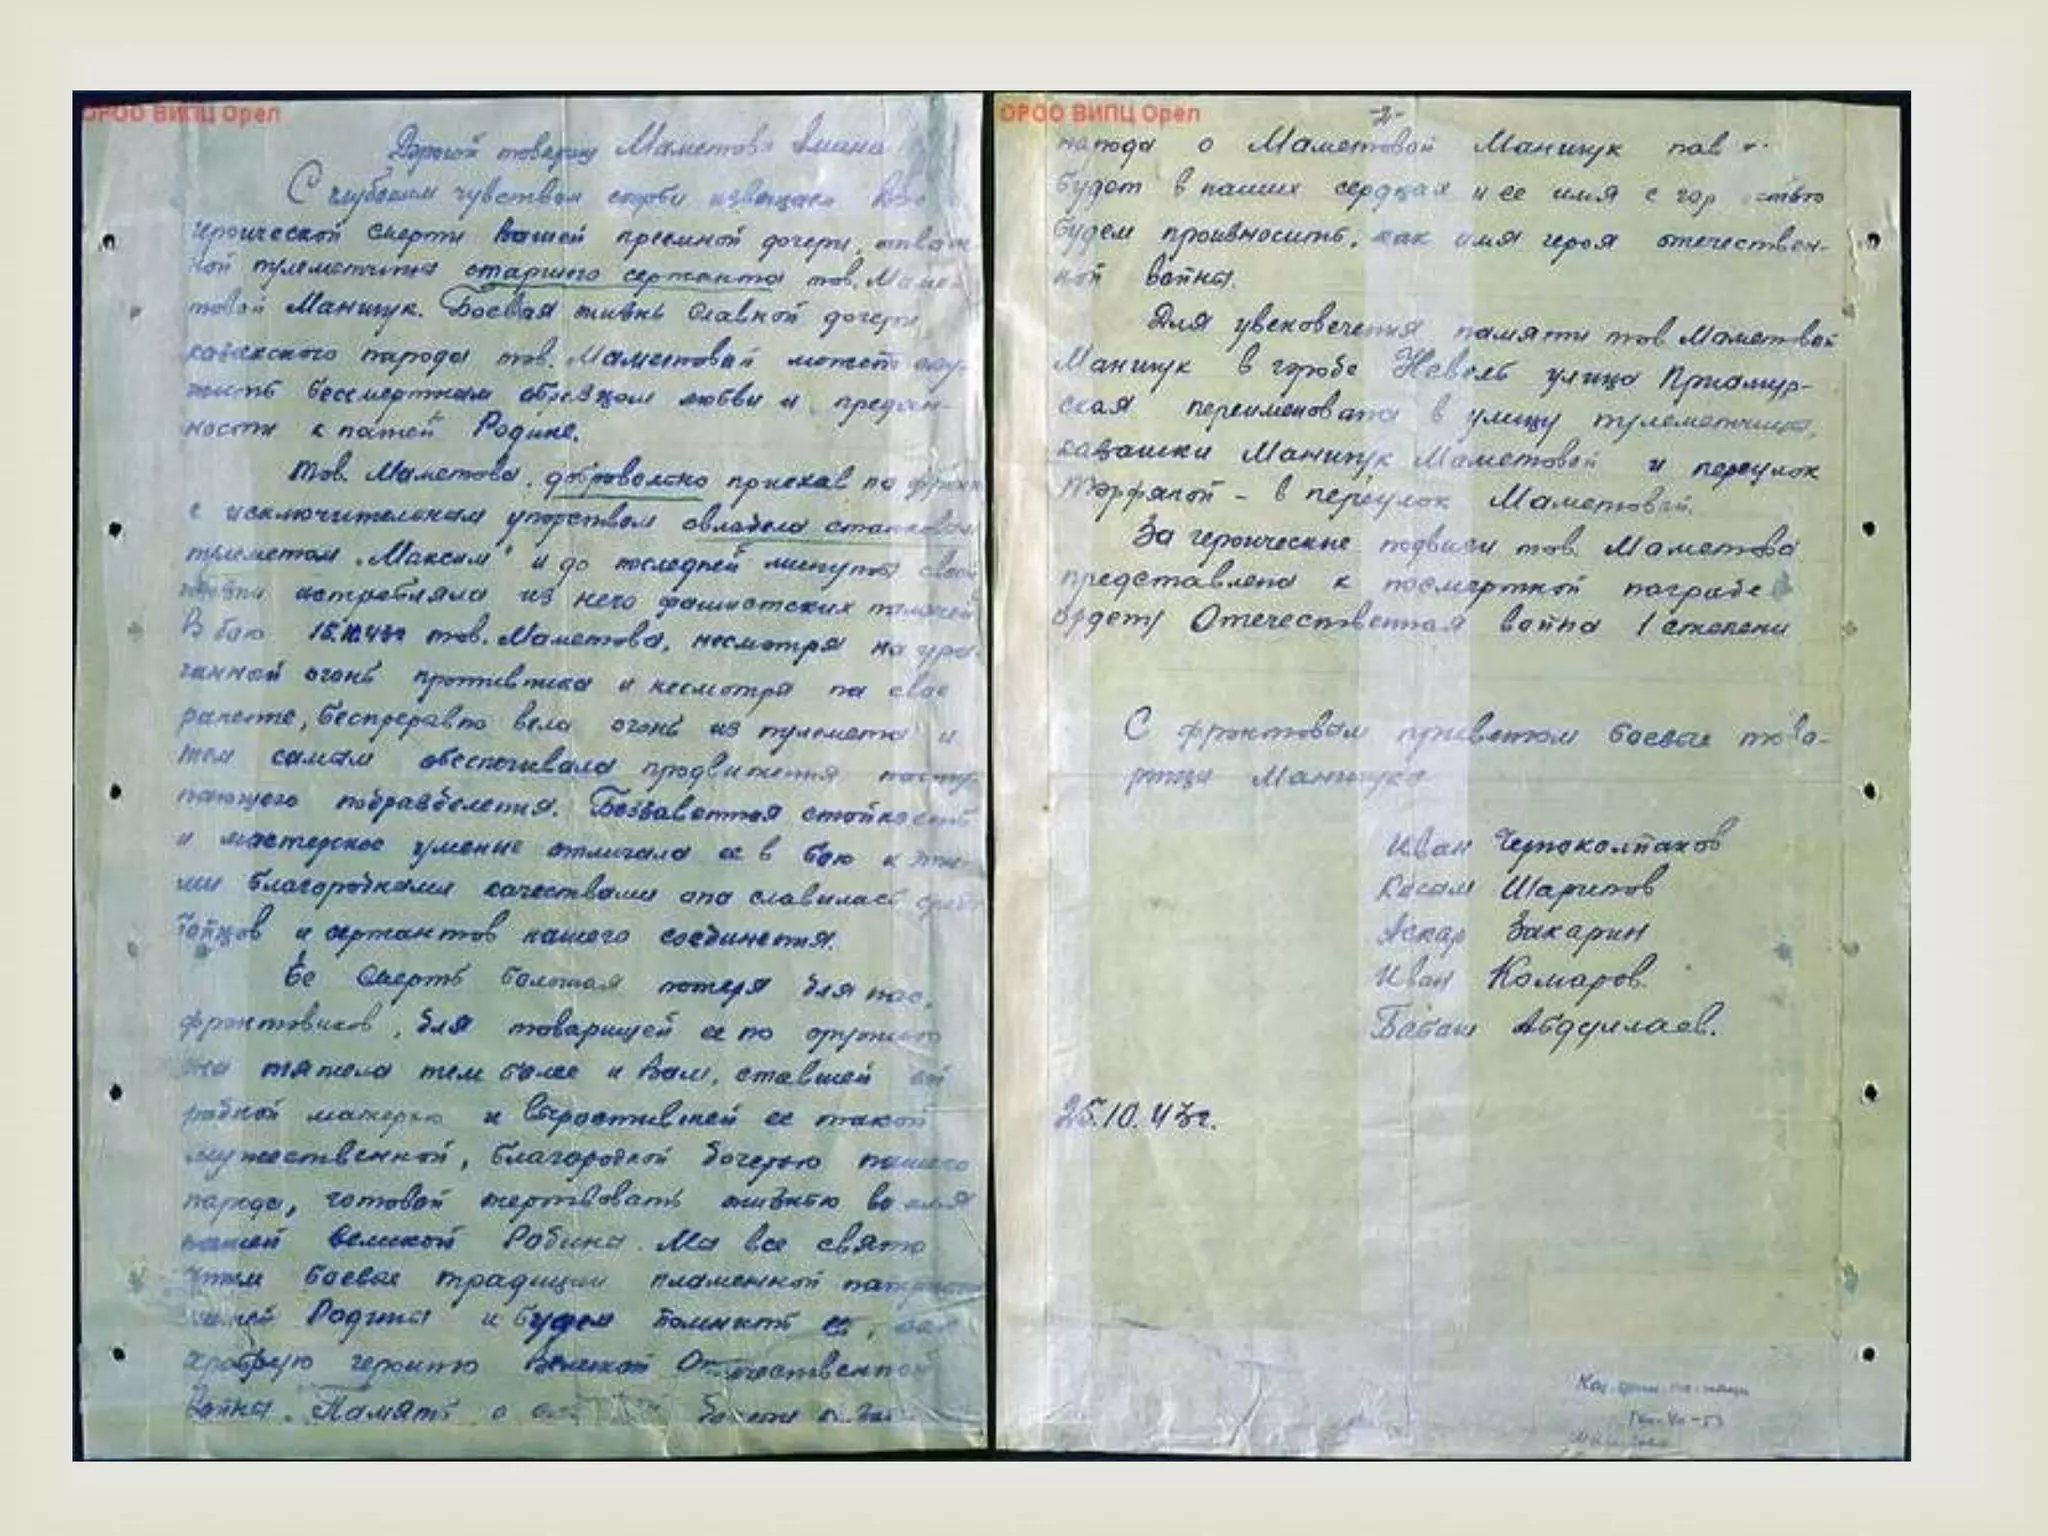 ОРОО ВИПЦ Орел
Дорогой товарищ Маметова Амина
С глубоким чувством скорби извещаем Вас о
героической смерти Вашей приемной дочери, отваж-
ной пулеметчика старшего сержанта тов. Маме-
товой Маншук. Боевая жизнь славной дочери
казахского народа тов. Маметовой может слу-
жить бессмертным образцом любви и предан-
ности к нашей Родине.
Тов. Маметова, добровольно приехав на фронт
с исключительным упорством овладела станковым
пулеметом „Максим" и до последней минуты своей
жизни истребляла из него фашистских палачей
В бою 15.10.43г тов. Маметова, несмотря на ура-
ганный огонь противника и несмотря на свое
ранение, беспрерывно вела огонь из пулемета и
тем самым обеспечивала продвижения насту-
пающего подразделения. Беззаветная стойкость
и мастерское умение отличала ее в бою и эти-
ми благородными качествами она славилась среди
бойцов и сержантов нашего соединения.
Ее смерть большая потеря для нас,
фронтовиков, для товарищей ее по оружию
она тяжела тем более и Вам, ставшей ей
родной матерью и вырастившей ее такой
мужественной, благородной дочерью нашего
народа, готовой жертвовать жизнью во имя
нашей великой Родины. Мы все свято
чтим боевые традиции пламенной патриотки
нашей Родины и будем помнить ее, как
храбрую героиню Великой Отечественной
Войны. Память о
ОРОО ВИПЦ Орел
-2-
народа о Маметовой Маншук
будет в наших сердцах и ее имя с гордостью
будем произносить, как имя героя отечествен-
ной войны.
Для увековечения памяти тов Маметовой
Маншук в городе Невель улица Приамур-
ская переименована в улицу пулеметчицы,
казашки Маншук Маметовой и переулок
Торфяной - в переулок Маметовой.
За героические подвиги тов. Маметова
представлена к посмертной награде
ордену Отечественная война 1 степени
С фронтовым приветом боевые това-
рищи Маншука
Иван Черноколпаков
Касам Шарипов
Аскар Закарин
Иван Комаров.
Бабаш Абдуллаев.
25.10.43г.